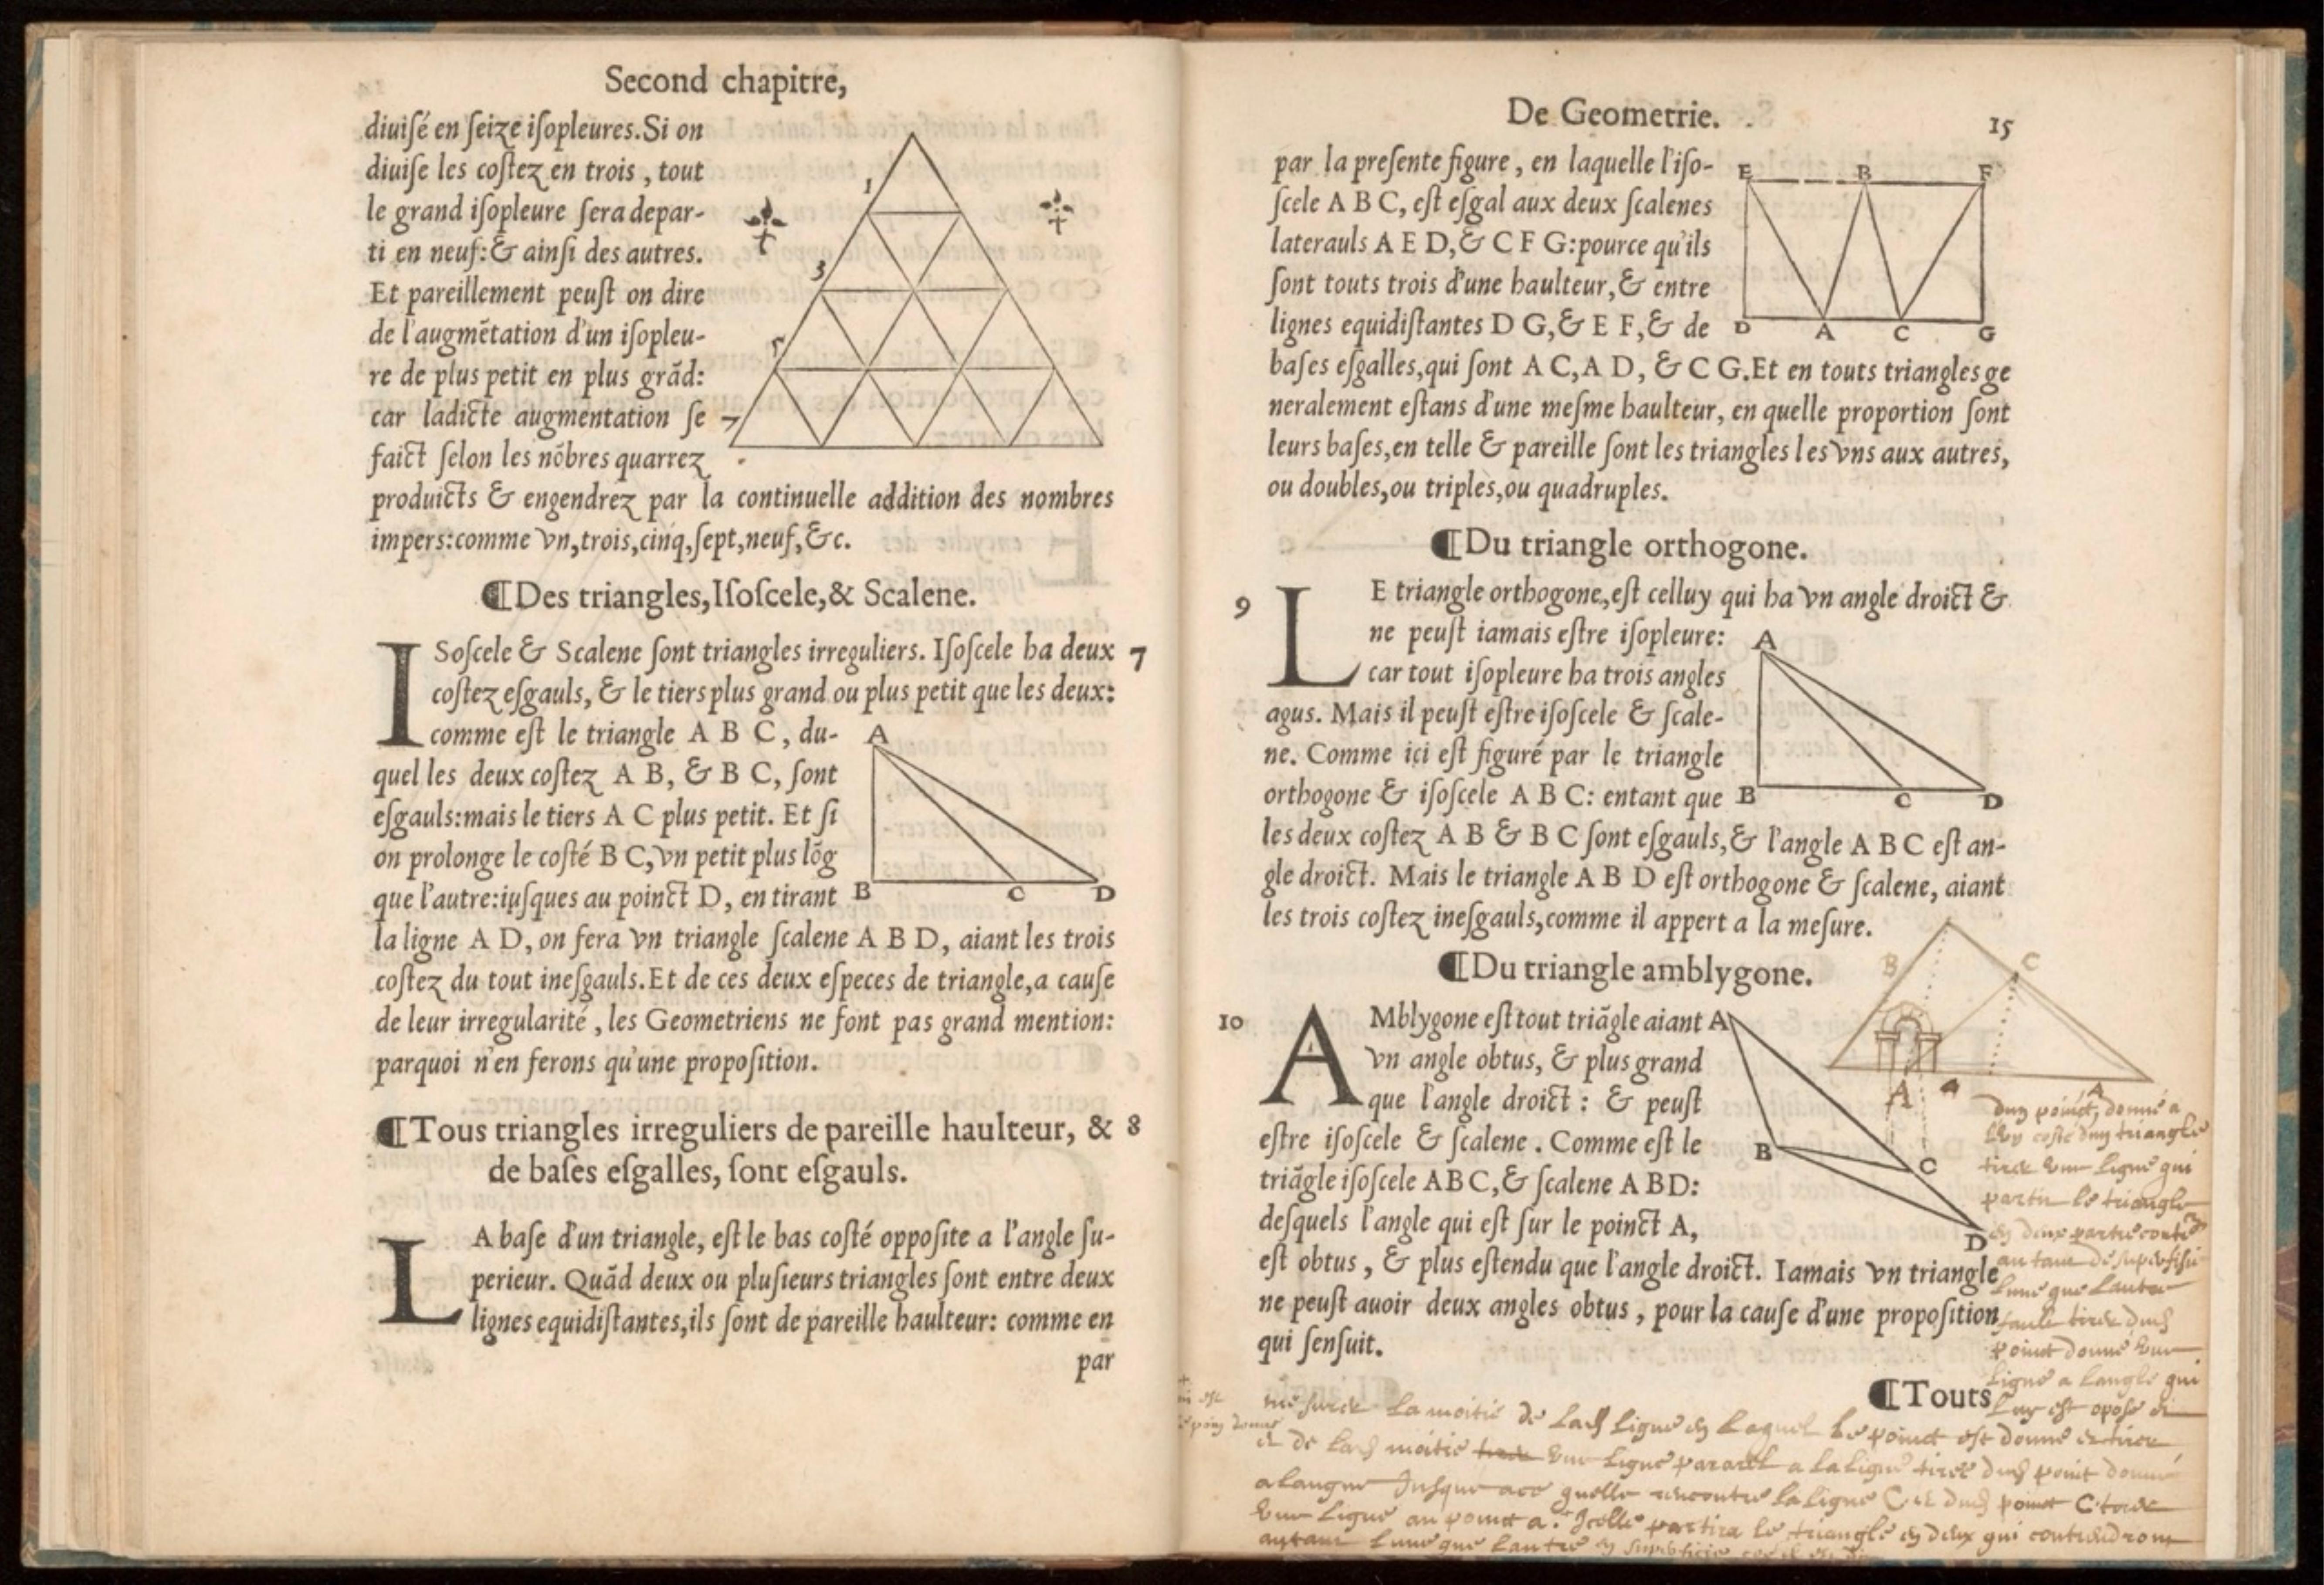 Second chapitre,
diuiſé en ſeize iſopleures. Si on
diuiſe les coſtez en trois, tout
le grand iſopleure ſera depar-
ti en neuf: & ainſi des autres.
Et pareillement peuſt on dire
de l'augmẽtation d'un iſopleu-
re de plus petit en plus grãd:
car ladicte augmentation ſe
faict ſelon les nõbres quarrez
produicts & engendrez par la continuelle addition des nombres
impers: comme vn, trois, cinq, ſept, neuf, &c.
1
3
5
7
¶Des triangles, Iſoſcele, & Scalene.
ISoſcele & Scalene ſont triangles irreguliers. Iſoſcele ha deux 7
coſtez eſgauls, & le tiers plus grand ou plus petit que les deux:
comme eſt le triangle A B C, du-
quel les deux coſtez A B, & B C, ſont
eſgauls: mais le tiers A C plus petit. Et ſi
on prolonge le coſté B C, vn petit plus lõg
que l'autre: iuſques au poinct D, en tirant
la ligne A D, on fera vn triangle ſcalene A B D, aiant les trois
coſtez du tout ineſgauls. Et de ces deux eſpeces de triangle, a cauſe
de leur irregularité, les Geometriens ne font pas grand mention:
parquoi n'en ferons qu'une propoſition.
A
B C D
¶Tous triangles irreguliers de pareille haulteur, & 8
de baſes eſgalles, ſont eſgauls.
LA baſe d'un triangle, eſt le bas coſté oppoſite a l'angle ſu-
perieur. Quãd deux ou pluſieurs triangles ſont entre deux
lignes equidiſtantes, ils ſont de pareille haulteur: comme en
par
De Geometrie. 15
par la preſente figure, en laquelle l'iſo-
ſcele A B C, eſt eſgal aux deux ſcalenes
laterauls A E D, & C F G: pource qu'ils
ſont touts trois d'une haulteur, & entre
lignes equidiſtantes D G, & E F, & de
baſes eſgalles, qui ſont A C, A D, & C G. Et en touts triangles ge
neralement eſtans d'une meſme haulteur, en quelle proportion ſont
leurs baſes, en telle & pareille ſont les triangles les vns aux autres,
ou doubles, ou triples, ou quadruples.
E B F
D A C G
¶Du triangle orthogone.
9 LE triangle orthogone, eſt celluy qui ha vn angle droict &
ne peuſt iamais eſtre iſopleure:
car tout iſopleure ha trois angles
agus. Mais il peuſt eſtre iſoſcele & ſcale-
ne. Comme ici eſt figuré par le triangle
orthogone & iſoſcele A B C: entant que
les deux coſtez A B & B C ſont eſgauls, & l'angle A B C eſt an-
gle droict. Mais le triangle A B D eſt orthogone & ſcalene, aiant
les trois coſtez ineſgauls, comme il appert a la meſure.
A
B C D
¶Du triangle amblygone.
10 AMblygone eſt tout triãgle aiant
vn angle obtus, & plus grand
que l'angle droict: & peuſt
eſtre iſoſcele & ſcalene. Comme eſt le
triãgle iſoſcele ABC, & ſcalene A BD:
deſquels l'angle qui eſt ſur le poinct A,
eſt obtus, & plus eſtendu que l'angle droict. Iamais vn triangle
ne peuſt auoir deux angles obtus, pour la cauſe d'une propoſition
qui ſenſuit.
A
B
C
D
B C
A A
¶Touts
poinct donné a
triangle
ligne qui
le triangle
que
poinct donné
ligne a langle qui
la moitie de ligne le poinct est donné
et de moitie ligne a la ligne tiree point donné
quelle rencontre la ligne C poinct C
ligne au poinct a. Icelle partira le triangle deux qui
lune que lautre